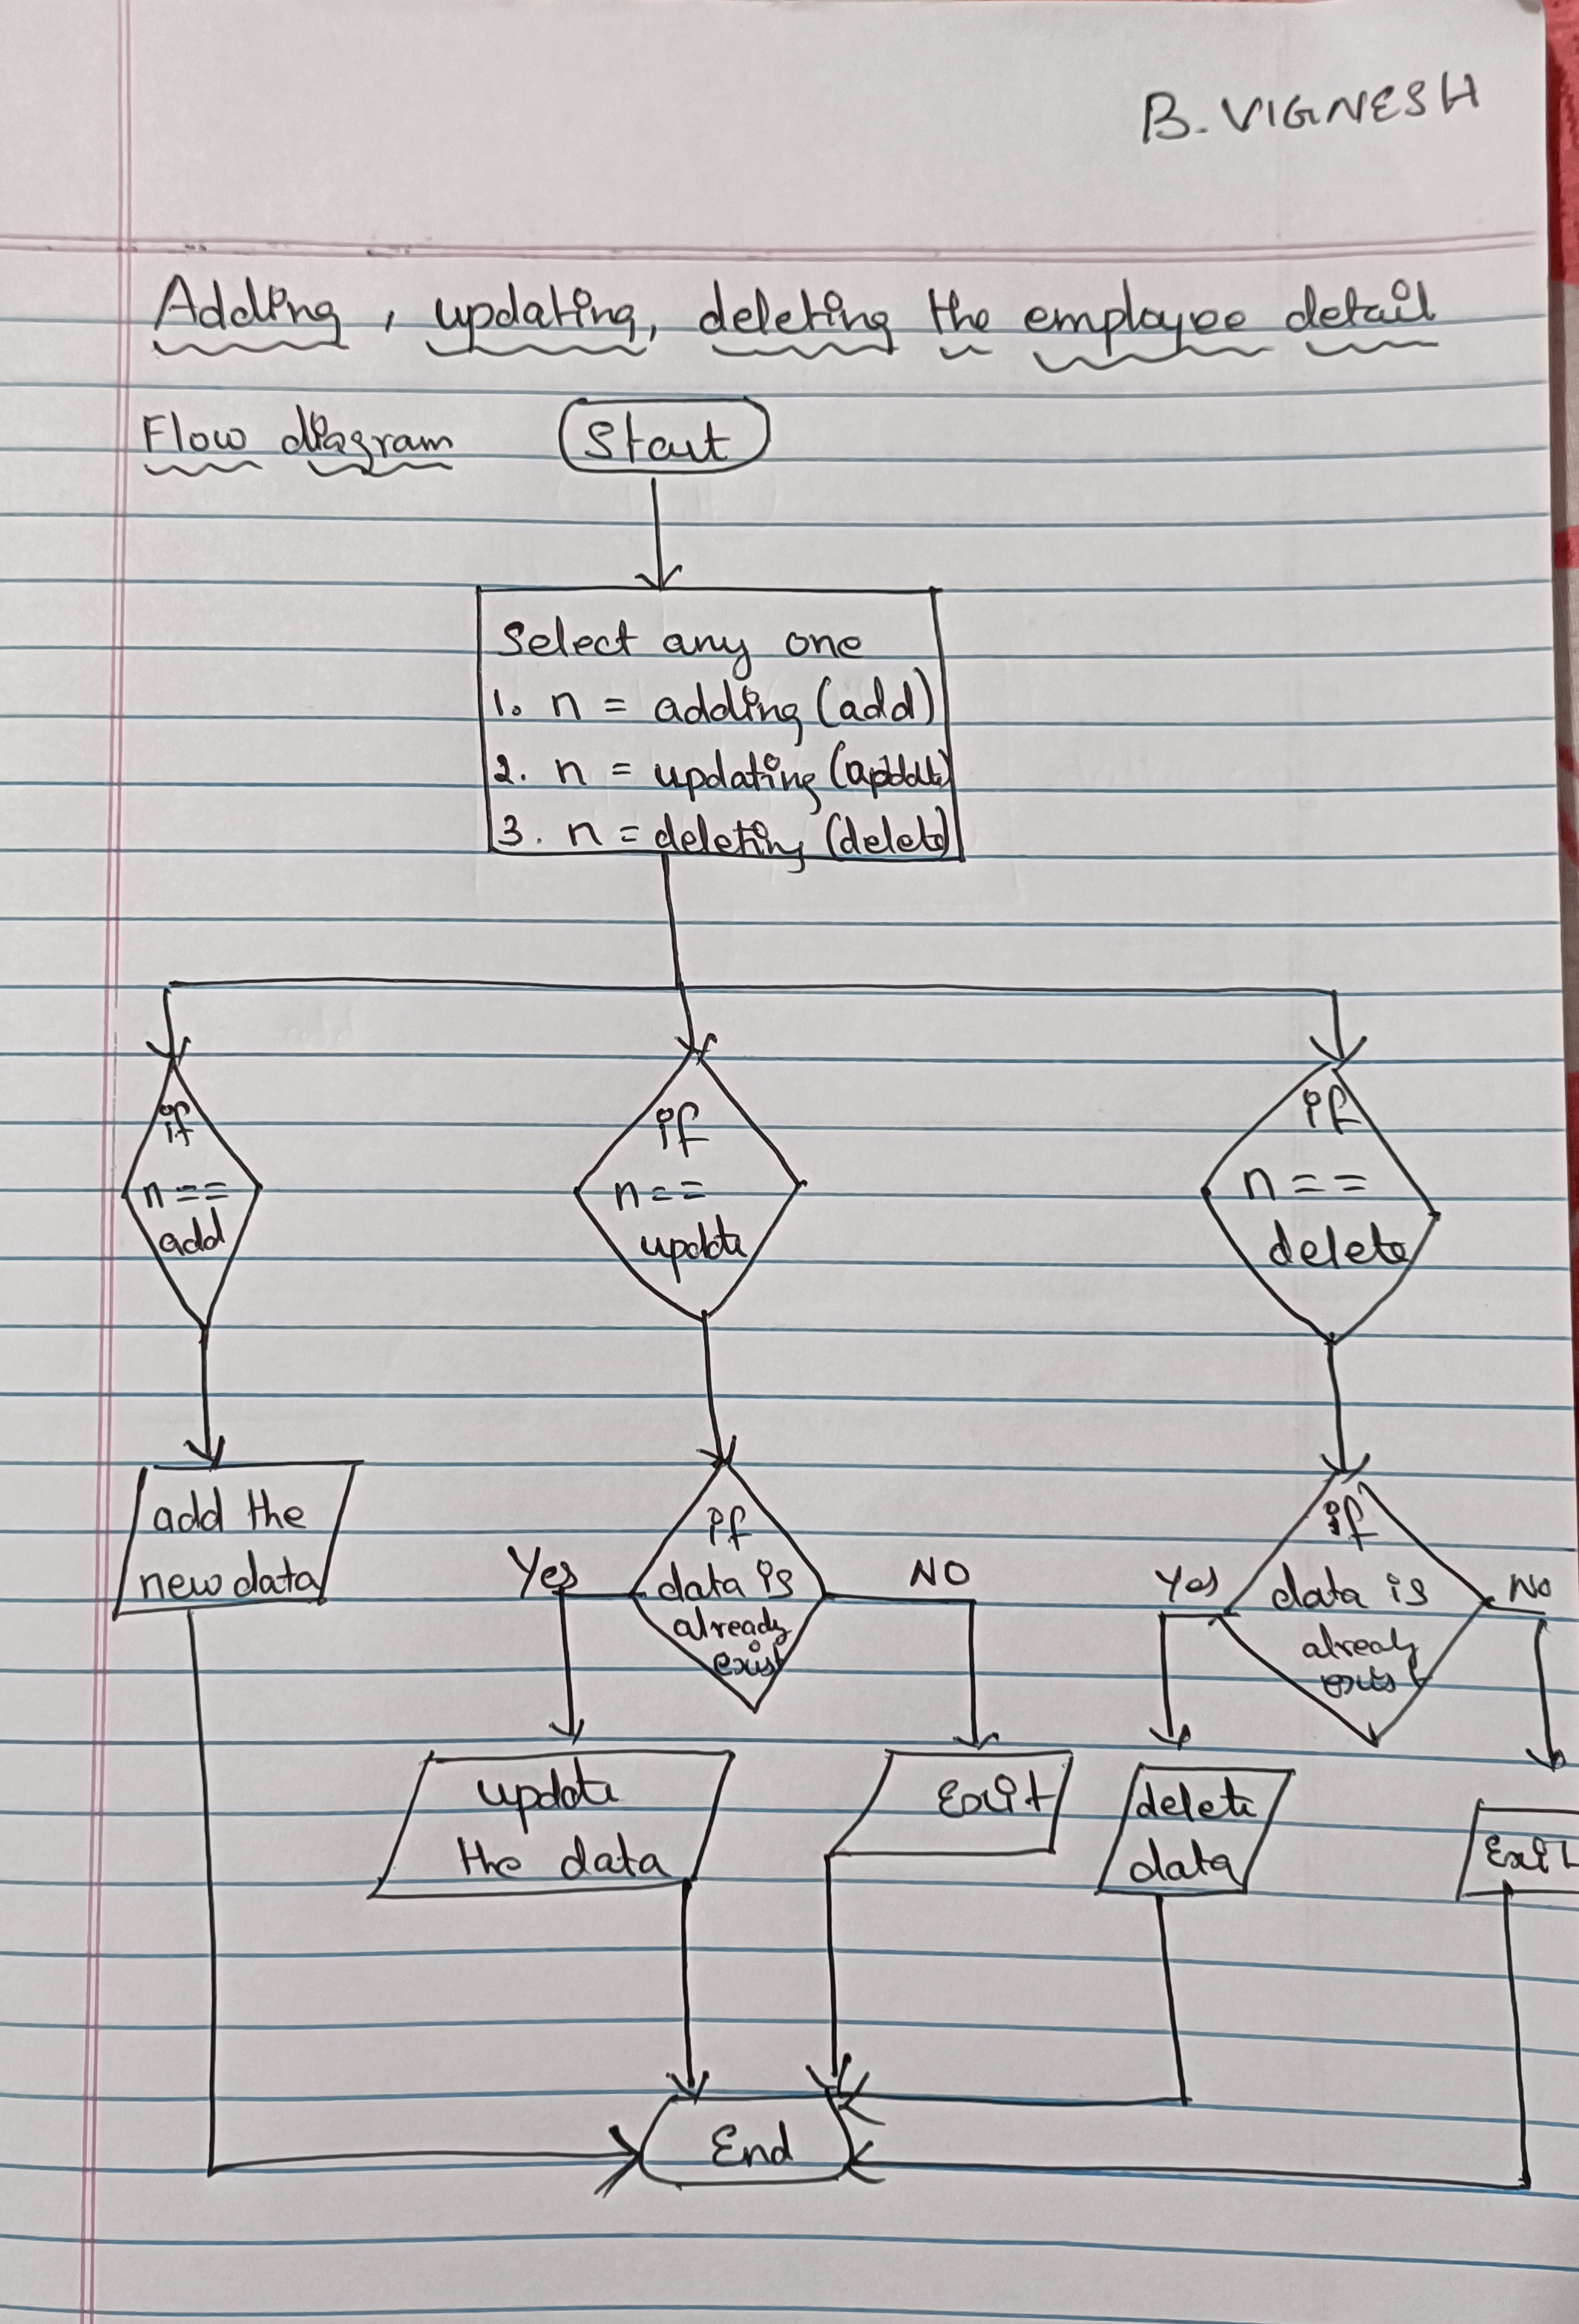 B. VIGNESH
Adding, updating, deleting the employee detail
Flow diagram
Start
Select any one
1. n = adding (add)
2. n = updating (update)
3. n = deleting (delete)
if
n ==
add
if
n ==
update
if
n ==
delete
add the
new data
Yes
if
data is
already
exist
NO
Yes
if
data is
already
exist
No
update
the data
Exit
delete
data
Exit
End